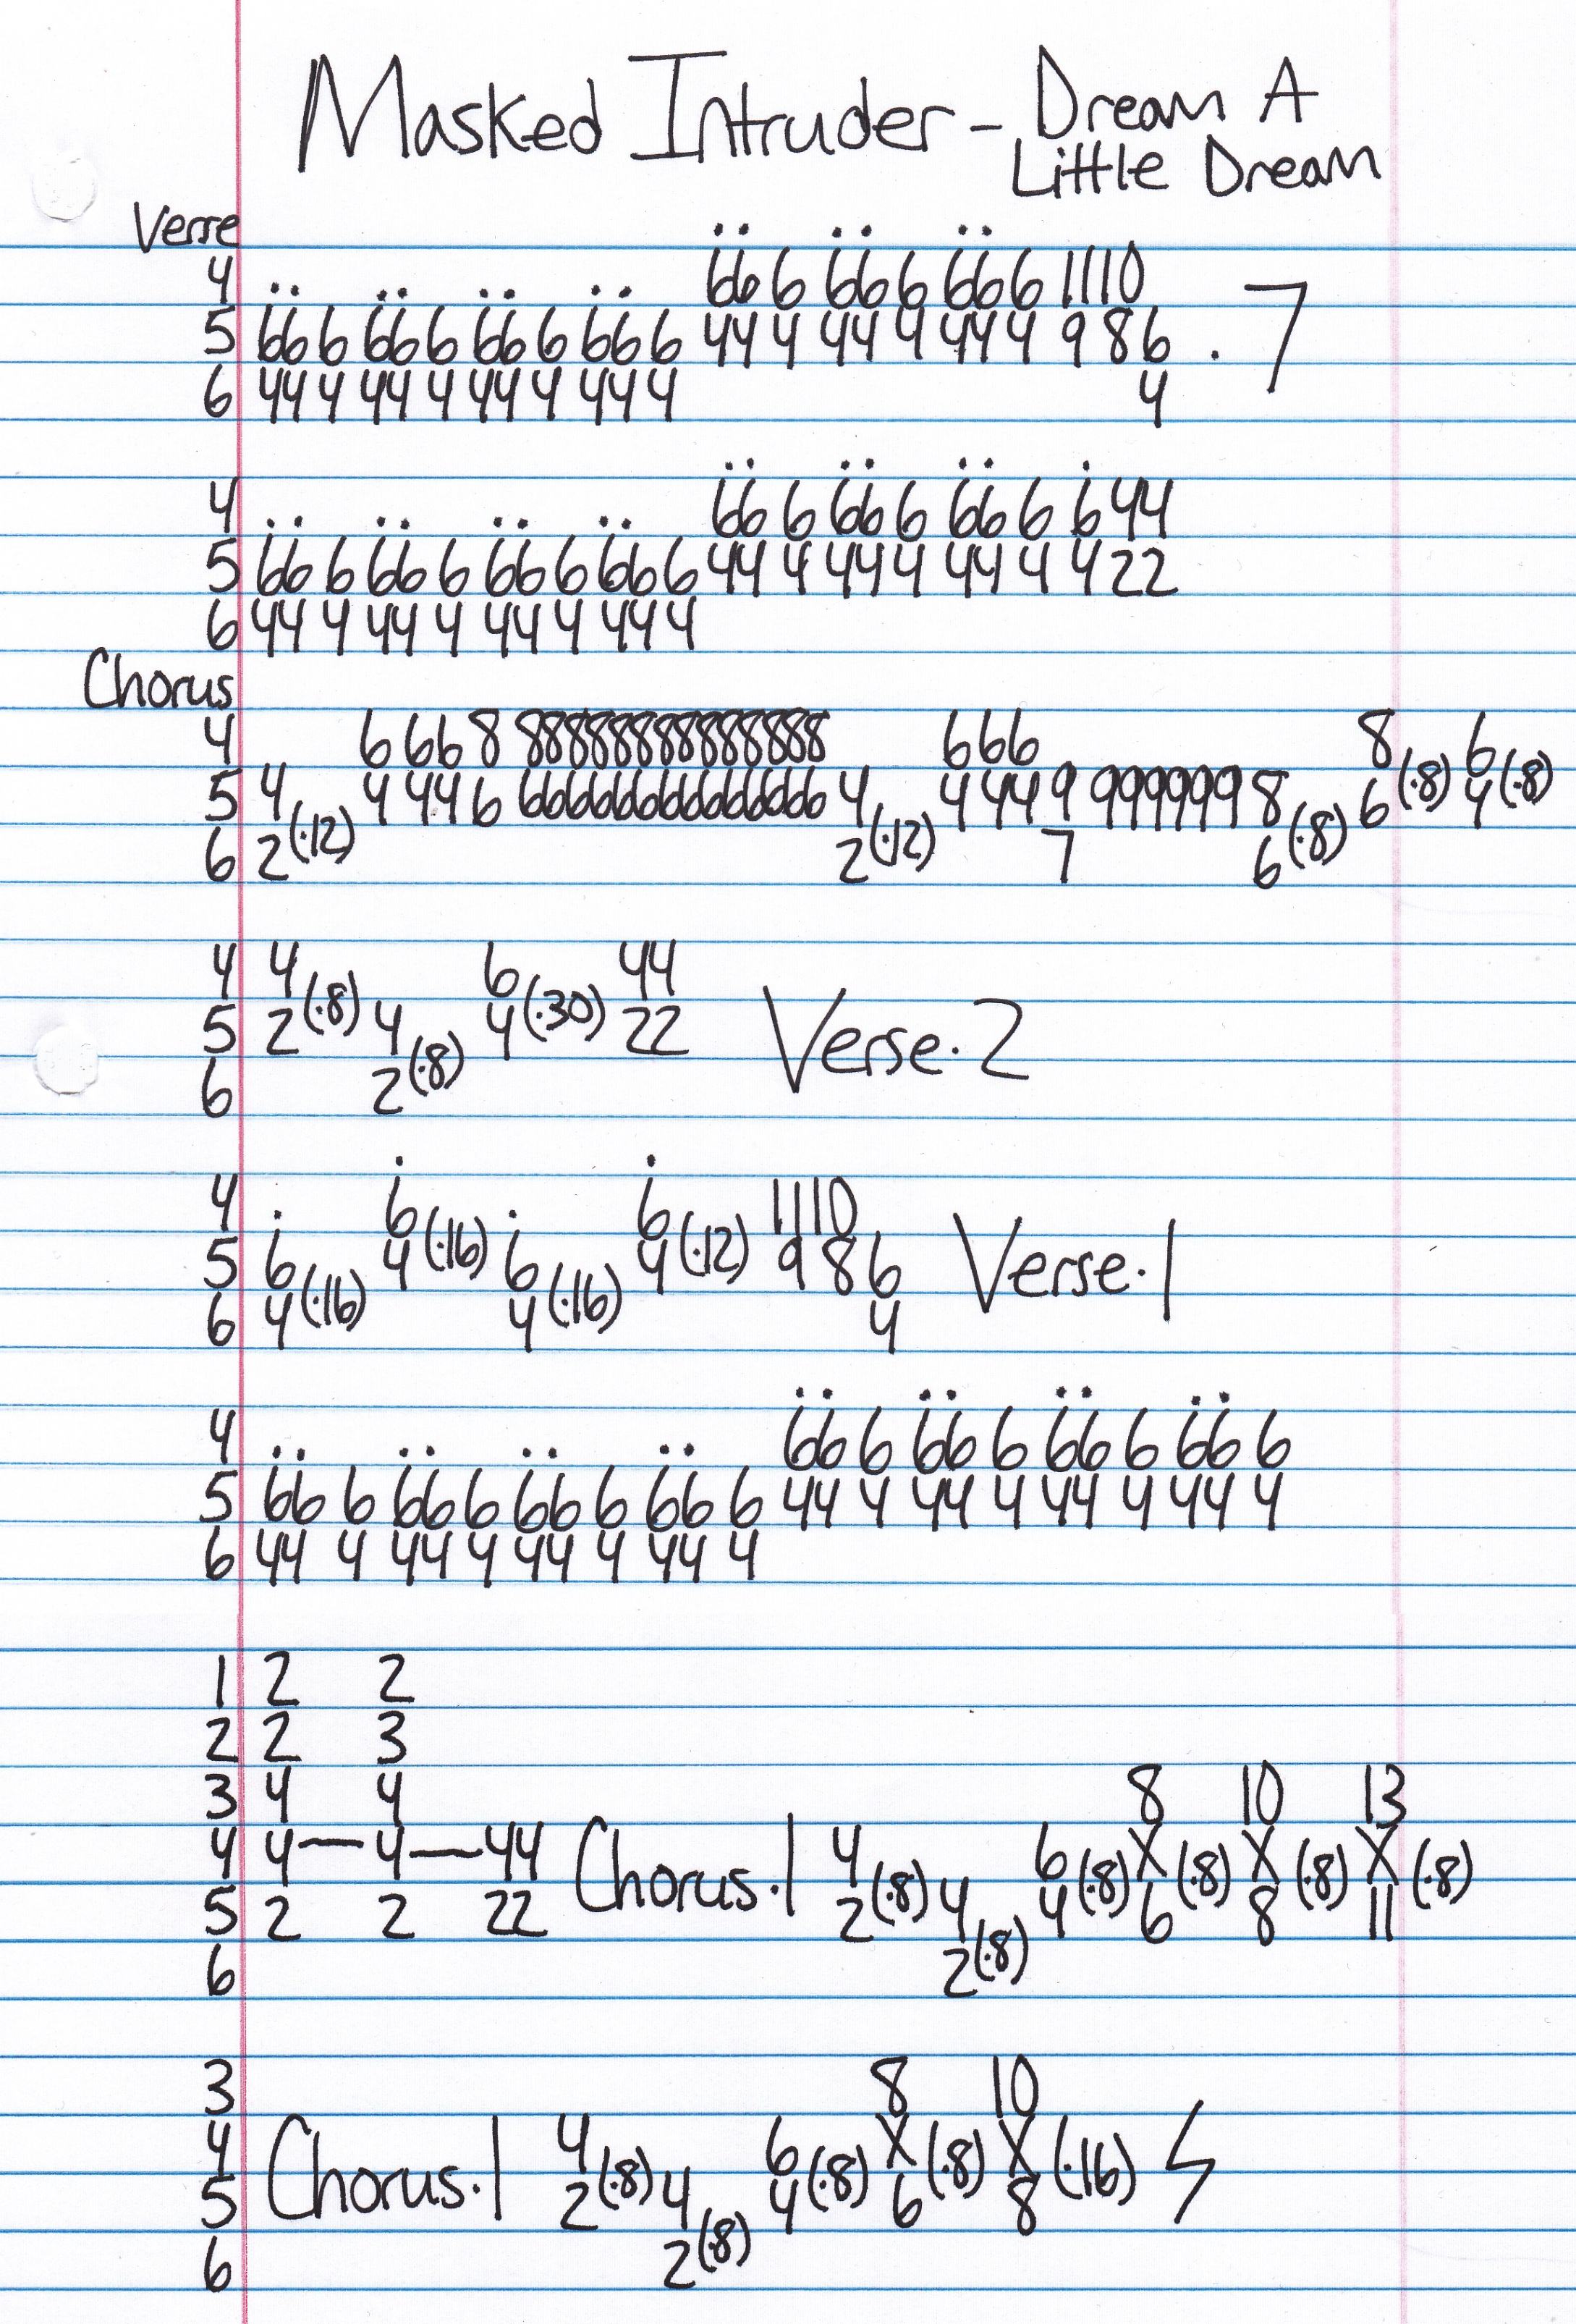 Masked Intruder - Dream A
Little Dream
Verse
4 66 6 66 6 66 6 11 10
5 66 6 66 6 66 6 66 6 44 4 44 4 44 4 9 8 6 . 7
6 44 4 44 4 44 4 44 4 4
4 66 6 66 6 66 6 6 44
5 66 6 66 6 66 6 66 6 44 4 44 4 44 4 4 22
6 44 4 44 4 44 4 44 4
Chorus
4 6 66 8 88888888888888 666 8 6
5 4 4 44 6 66666666666666 4 444 9 9999999 8 6(.8) 4(.8)
6 2(.12) 2(.12) 7 6(.8)
4 4 6 44
5 2(.8) 4 4(.30) 22 Verse.2
6 2(.8)
4 6 6 11 10
5 6 4(.16) 6 4(.12) 9 8 6 Verse.1
6 4(.16) 4(.16) 4
4 66 6 66 6 66 6 66 6
5 66 6 66 6 66 6 66 6 44 4 44 4 44 4 44 4
6 44 4 44 4 44 4 44 4
1 2 2
2 2 3
3 4 4 8 10 13
4 4— 4— 44 Chorus.1 4 6 X X X
5 2 2 22 2(.8) 4 4(.8) 6(.8) 8(.8) 11(.8)
6 2(.8)
3 8 10
4 Chorus.1 4 6 X X
5 2(.8) 4 4(.8) 6(.8) 8(.16)
6 2(.8)